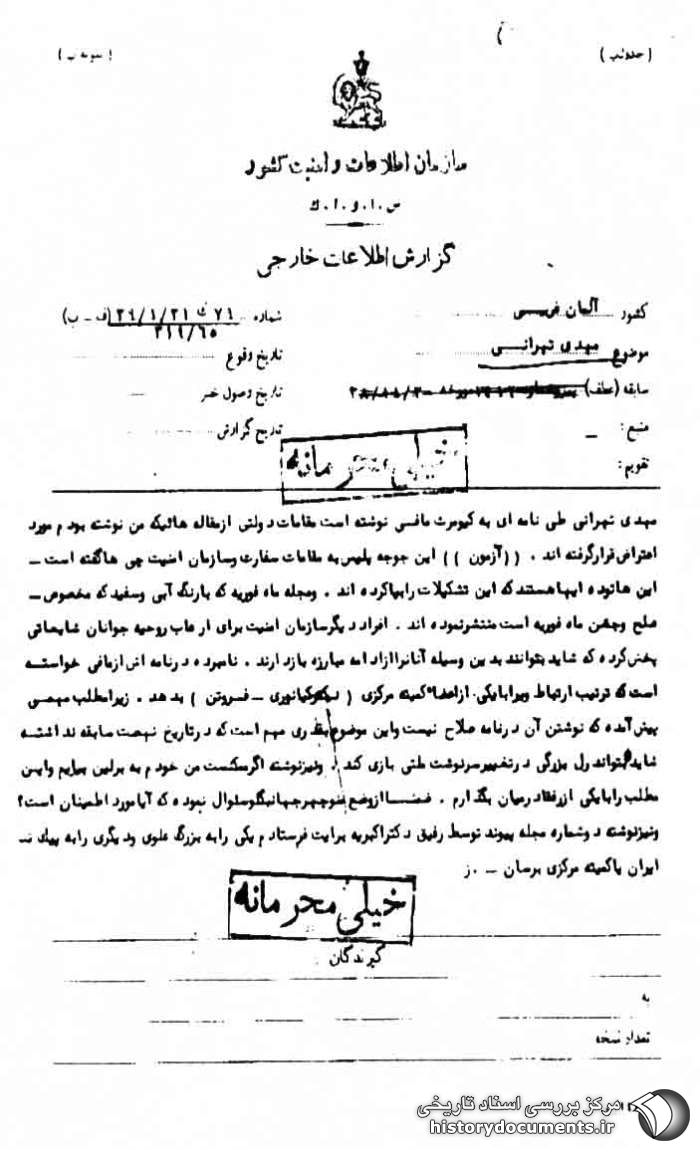 سازمان اطلاعات و امنیت کشور
س.ا.و.ا.ک
گزارش اطلاعات خارجی
کشور آلمان غربی
شماره
موضوع مهدی تهرانی
۳۱۹/۶۵
تاریخ وقوع
سابقه (عطف)
تاریخ وصول خبر
منبع: –
تاریخ گزارش
تقویم:
خیلی محرمانه
مهدی تهرانی طی نامه ای به کیومرث نوشته است مقامات دولتی ازمقاله هائیکه من نوشته بودم مورد
اعتراض قرارگرفته اند . ((آزمون )) این جوجه پلیس به مقامات سفارت وسازمان امنیت چی هاگفته است –
این هاتوده ایهاهستندکه این تشکیلات رابپاکرده اند . ومجله ماه فوریه که بارنگ آبی وسفیدکه مخصوص –
صلح وجشن ماه فوریه است منتشرنموده اند . افراد دیگرسازمان امنیت برای ارعاب روحیه جوانان شایعاتی
پخش کرده که شاید بتوانند بدین وسیله آنانراازادامه مبارزه بازدارند . نامبرده درنامه اش ازمافی خواسته
است که ترتیب ارتباط ویرابایکی ازاعضاء کمیته مرکزی ( کیانوری – فروتن ) بدهد . زیرامطلب مهمی
پیش آمده که نوشتن آن درنامه صلاح نیست واین موضوع بقدری مهم است که درتاریخ نهضت سابقه نداشته
شاید بتواند رل بزرگی درتغییرسرنوشت ملتی بازی کند . ونیزنوشته اگرممکنست من خودم به برلین بیایم واین
مطلب رابایکی ازرفقادرمیان بگذارم . ضمناازوضع منوچهرجهانبگلوسئوال نموده که آیامورد اطمینان است؟
ونیزنوشته دوشماره مجله پیوند توسط رفیق دکتراکبریه برایت فرستادم یکی رابه بزرگ علوی ودیگری رابه پیک
ایران یاکمیته مرکزی برسان – .ز
خیلی محرمانه
گیرندگان
به
تعداد نسخه
مرکز بررسی اسناد تاریخی
historydocuments.ir